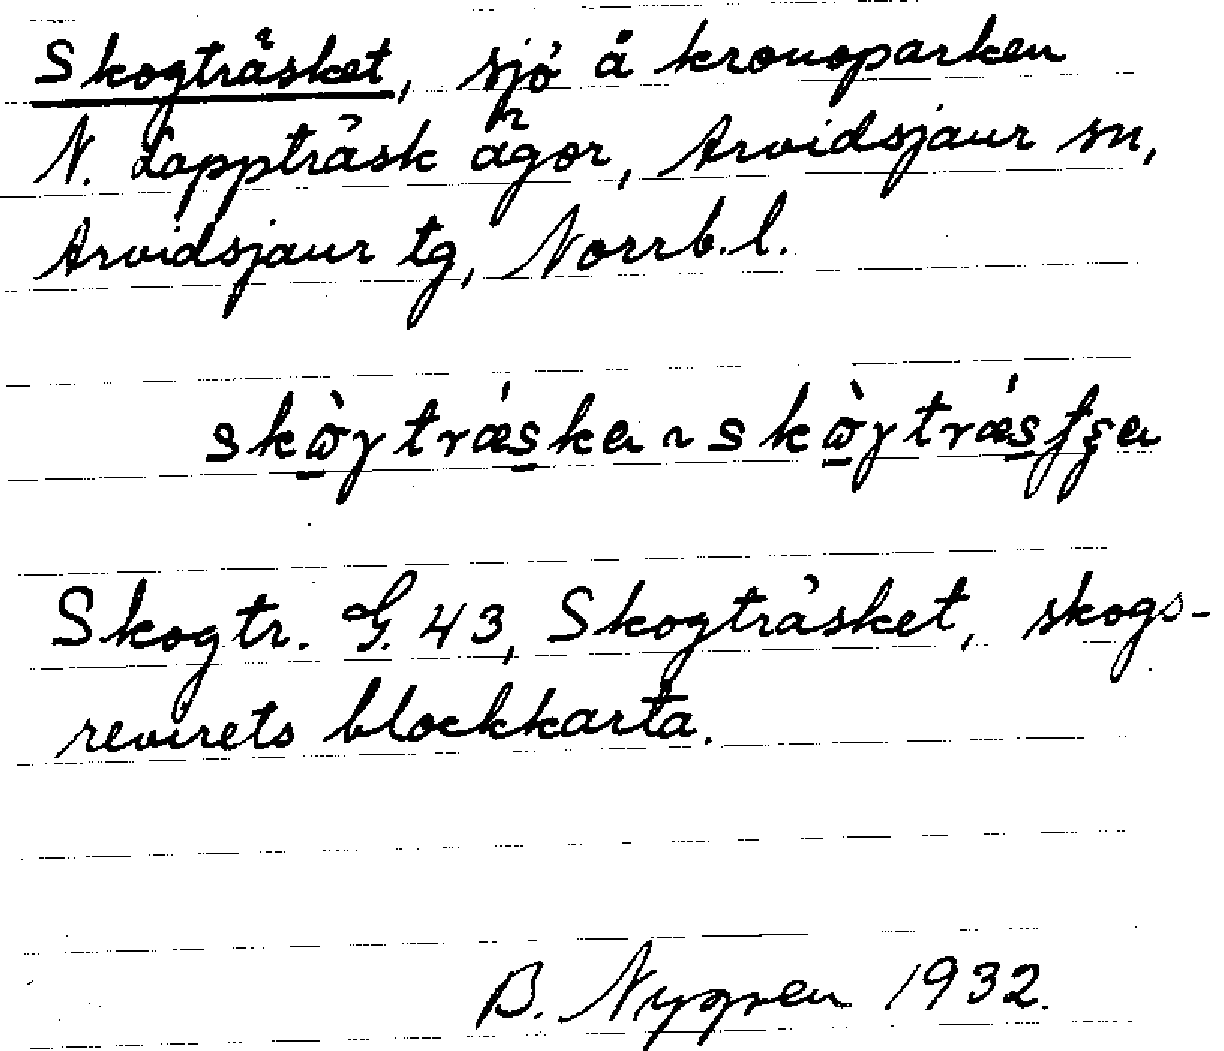 Skogträsket, sjö å kronoparken
N. Lappträsk ägor, Arvidsjaur sn,
Arvidsjaur tg, Norrb.l.
Skogtr. G. 43, Skogträsket, skogs-
revirets blockkarta.
B. Nygren 1932.